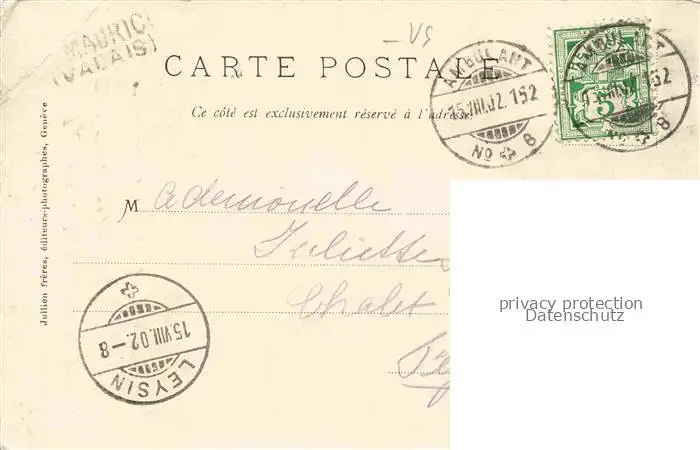 MAURIC
(VALAIS)
– VS
CARTE POSTALE
Ce côté est exclusivement réservé à l'adresse
AMBULANT
15.VIII.02.152
No 8
AMBULANT
15.VIII.02.152
No 8
5
Jullien frères, éditeurs-photographes, Genève
M ademoiselle
Juliette
Chalet
privacy protection
Datenschutz
15.VIII.02.-8
LEYSIN